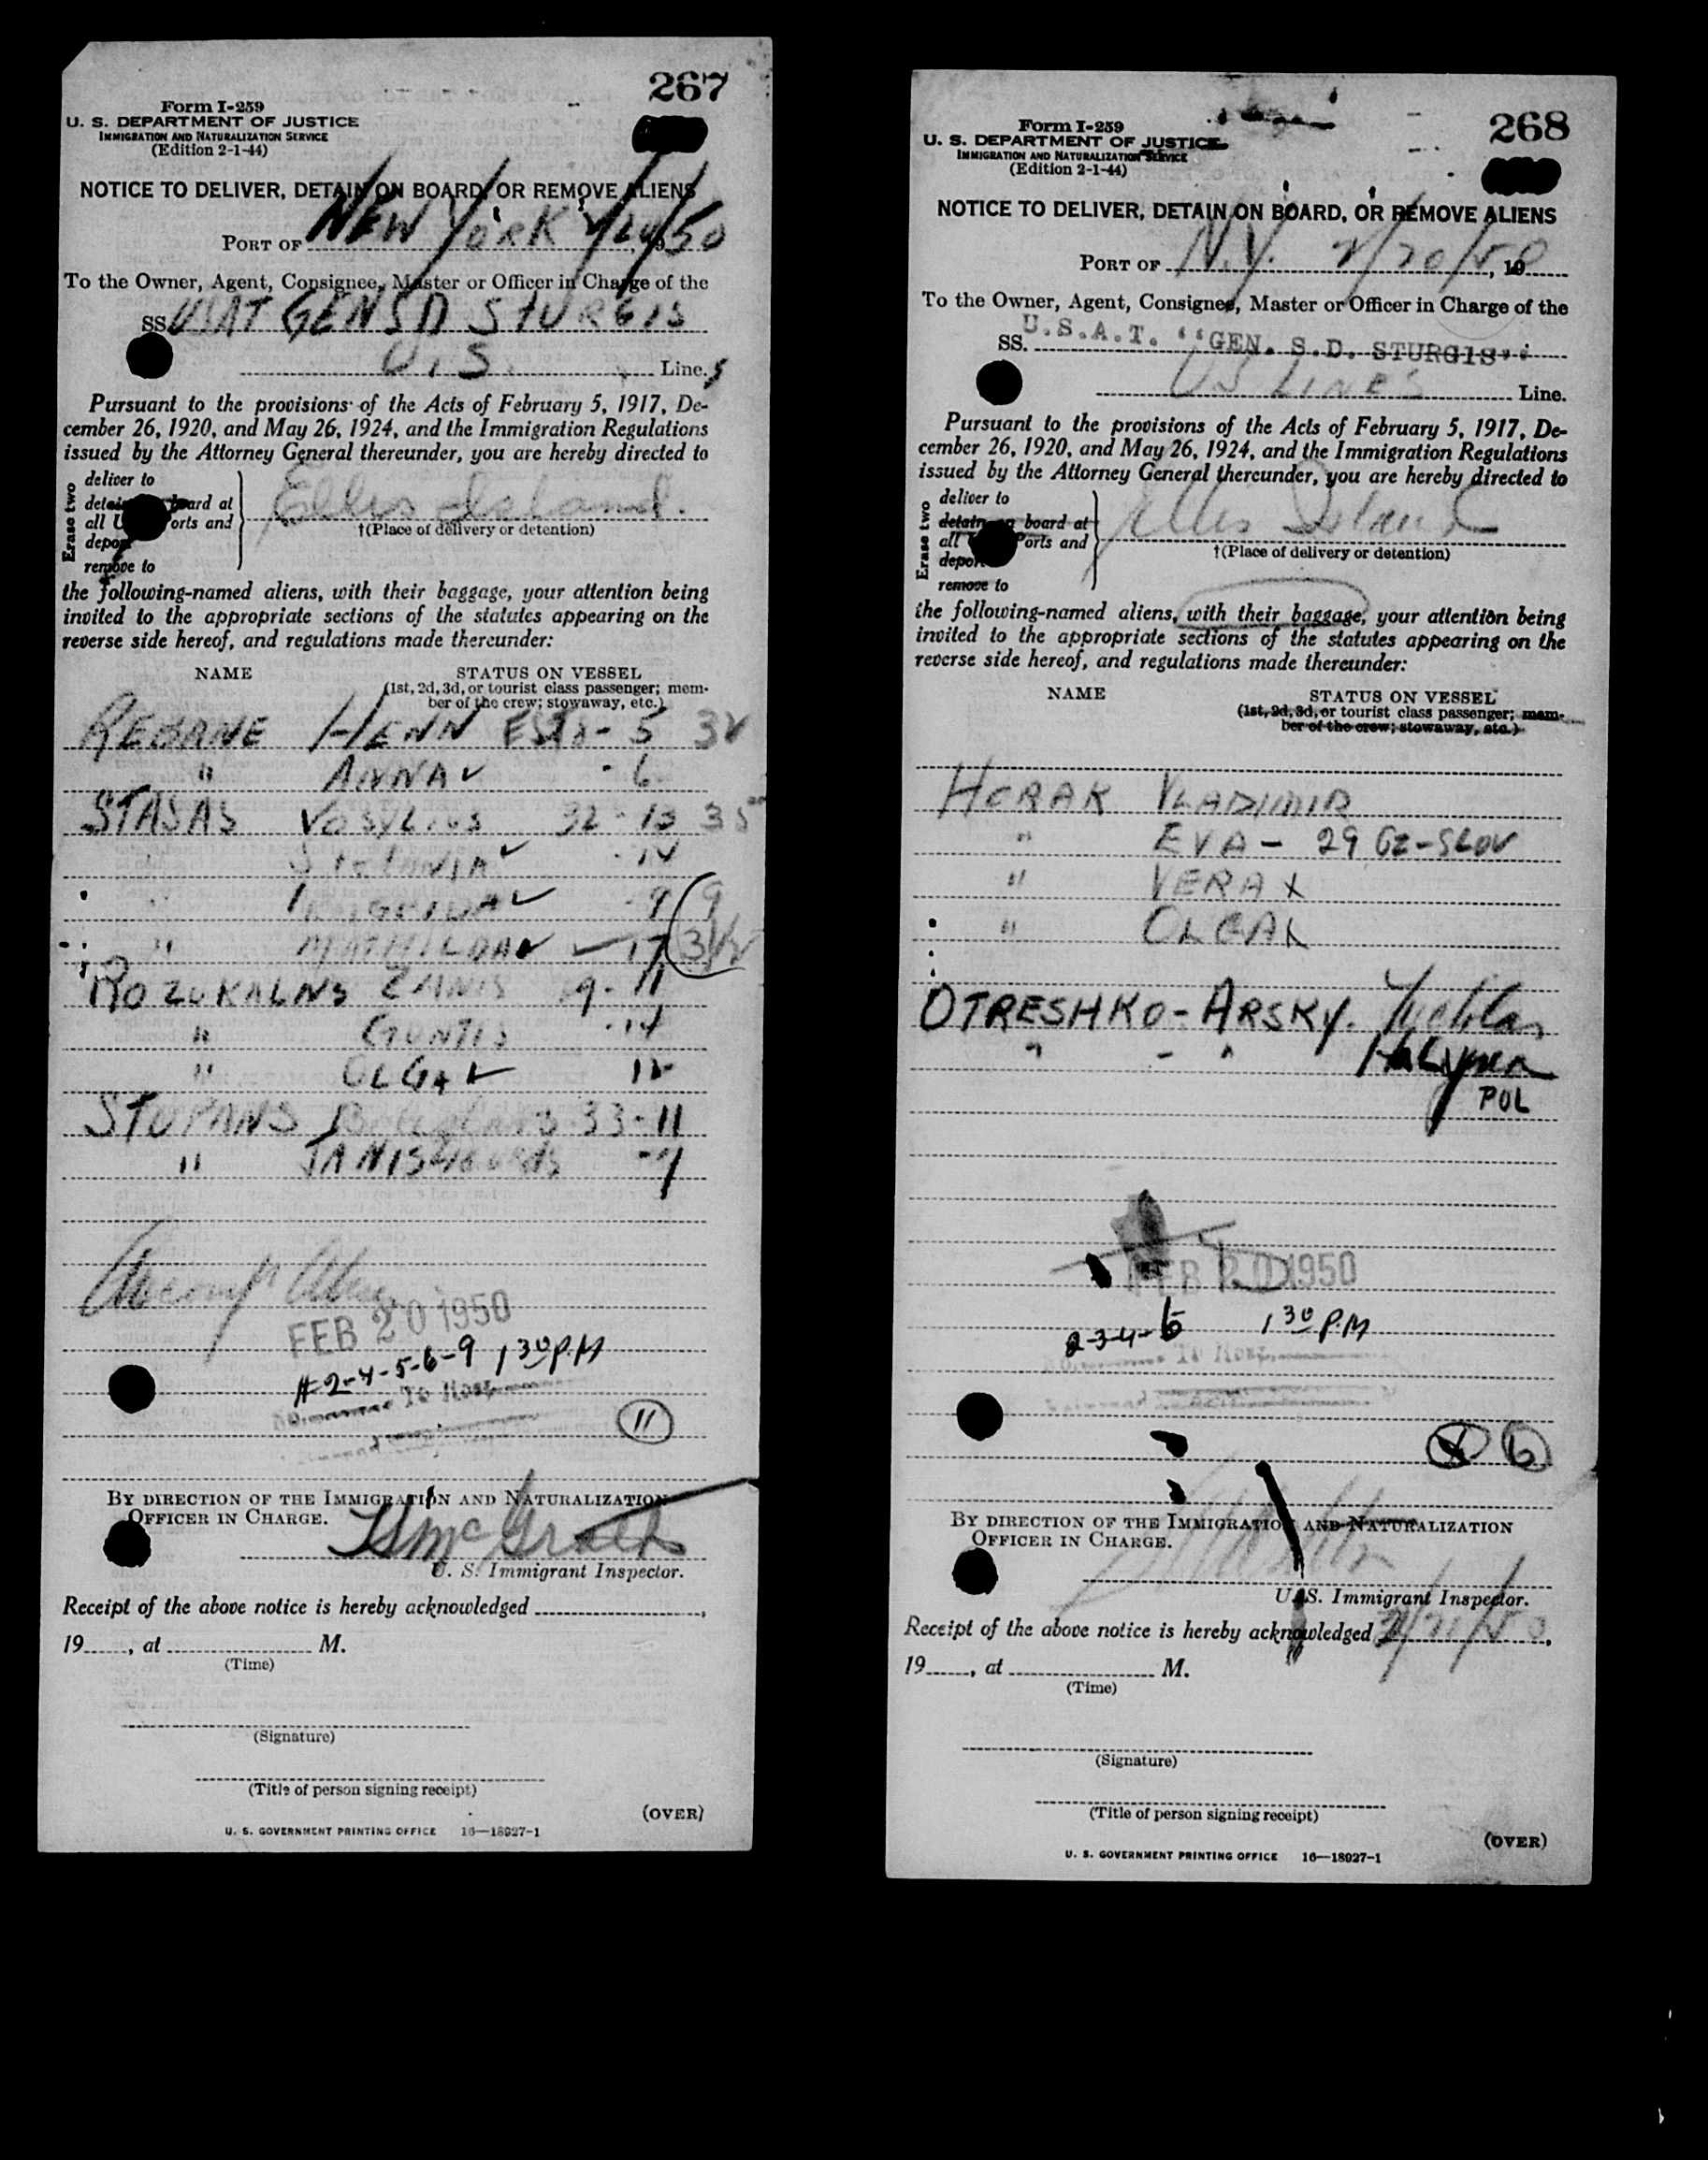 267
Form I-259
U. S. DEPARTMENT OF JUSTICE
IMMIGRATION AND NATURALIZATION SERVICE
(Edition 2-1-44)
NOTICE TO DELIVER, DETAIN ON BOARD, OR REMOVE ALIENS
PORT OF NEW YORK 50
To the Owner, Agent, Consignee, Master or Officer in Charge of the
SS. USAT GEN S D STURGIS
U.S. Line.
Pursuant to the provisions of the Acts of February 5, 1917, De-
cember 26, 1920, and May 26, 1924, and the Immigration Regulations
issued by the Attorney General thereunder, you are hereby directed to
Erase two
deliver to
board at
all orts and
remove to
Ellis Island.
†(Place of delivery or detention)
the following-named aliens, with their baggage, your attention being
invited to the appropriate sections of the statutes appearing on the
reverse side hereof, and regulations made thereunder:
NAME STATUS ON VESSEL
(1st, 2d, 3d, or tourist class passenger; mem-
ber of the crew; stowaway, etc.)
REBANE HENN - 5
" ANNA ✓ - 6
STASAS VOSYLIUS 32 - 13
✓ - 14
✓ - 9
" MATHILDA ✓ 17
ROZUKALNS ZANIS 9 - 11
" GUNTIS - 14
" OLGA ✓ 12
STUPANS 33 - 11
" JANIS
FEB 20 1950
#2-4-5-6-9 1 30 P.M
11
BY DIRECTION OF THE IMMIGRATION AND NATURALIZATION
OFFICER IN CHARGE.
McGrath
U. S. Immigrant Inspector.
Receipt of the above notice is hereby acknowledged
19 , at M.
(Time)
(Signature)
(Title of person signing receipt)
(OVER)
U. S. GOVERNMENT PRINTING OFFICE 16—18927-1
268
Form I-259
U. S. DEPARTMENT OF JUSTICE
IMMIGRATION AND NATURALIZATION SERVICE
(Edition 2-1-44)
NOTICE TO DELIVER, DETAIN ON BOARD, OR REMOVE ALIENS
PORT OF N.Y. 2/20/50, 19
To the Owner, Agent, Consignee, Master or Officer in Charge of the
SS. U.S.A.T. "GEN. S.D. STURGIS"
US LINES Line.
Pursuant to the provisions of the Acts of February 5, 1917, De-
cember 26, 1920, and May 26, 1924, and the Immigration Regulations
issued by the Attorney General thereunder, you are hereby directed to
Erase two
deliver to
detain on board at
all Ports and
deport
remove to
Ellis Island
†(Place of delivery or detention)
the following-named aliens, with their baggage, your attention being
invited to the appropriate sections of the statutes appearing on the
reverse side hereof, and regulations made thereunder:
NAME STATUS ON VESSEL
(1st, 2d, 3d, or tourist class passenger; mem-
ber of the crew; stowaway, etc.)
HORAK VLADIMIR
" EVA - 29 CZ-SLOV
" VERA X
" OLGA X
OTRESHKO-ARSKY.
" - " Halyna
POL
FEB 20 1950
2-3-4-6 1 30 P.M
6
BY DIRECTION OF THE IMMIGRATION AND NATURALIZATION
OFFICER IN CHARGE.
U. S. Immigrant Inspector.
Receipt of the above notice is hereby acknowledged
19 , at M.
(Time)
(Signature)
(Title of person signing receipt)
(OVER)
U. S. GOVERNMENT PRINTING OFFICE 16—18927-1